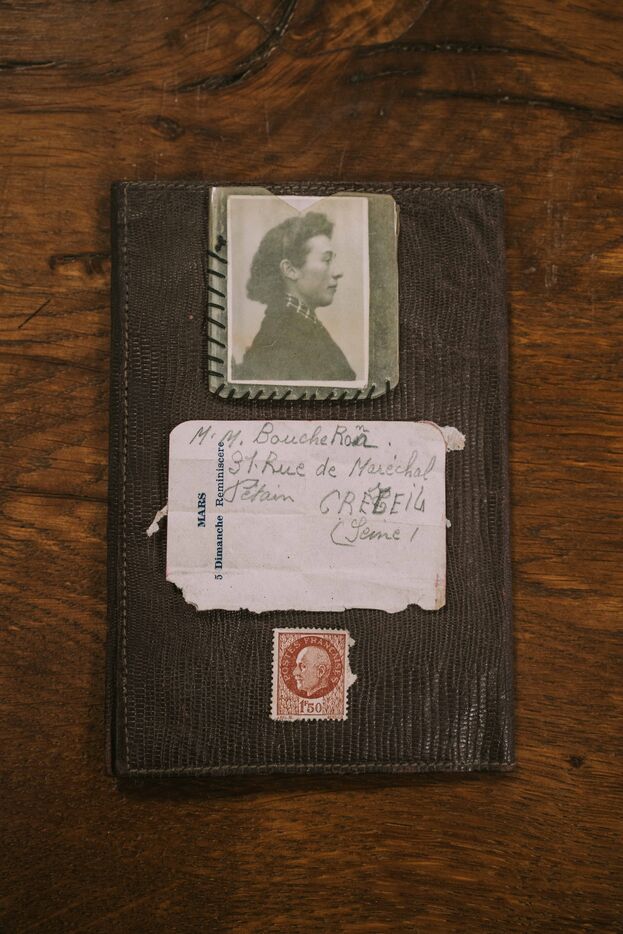 M. M. BoucheRon.
31. Rue de Maréchal
Pétain CRETEIL
(Seine)
MARS
5 Dimanche Reminiscere
POSTES FRANÇAISES
1F50